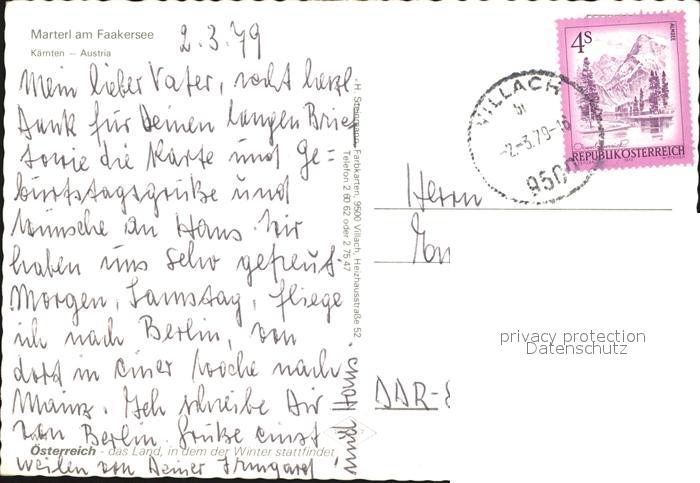 Marterl am Faakersee
Kärnten – Austria
2.3.79
Mein lieber Vater, recht herzl.
Dank für Deinen langen Brief
sowie die Karte und Ge=
burtstagsgrüße und
Wünsche an Hans. Wir
haben uns sehr gefreut.
Morgen, Samstag, fliege
ich nach Berlin, von
dort in einer Woche nach
Mainz. Ich schreibe Dir
von Berlin. Grüße einst
weilen von Deiner Irmgard
und Hans
Österreich - das Land, in dem der Winter stattfindet
H. Steinmann, Farbkarten, 9500 Villach, Heizhausstraße 52
Telefon 2 60 62 oder 2 75 47
4 S
ALMSEE
REPUBLIK ÖSTERREICH
VILLACH
-2.-3.79-18
9500
Herrn
DDR-
privacy protection
Datenschutz